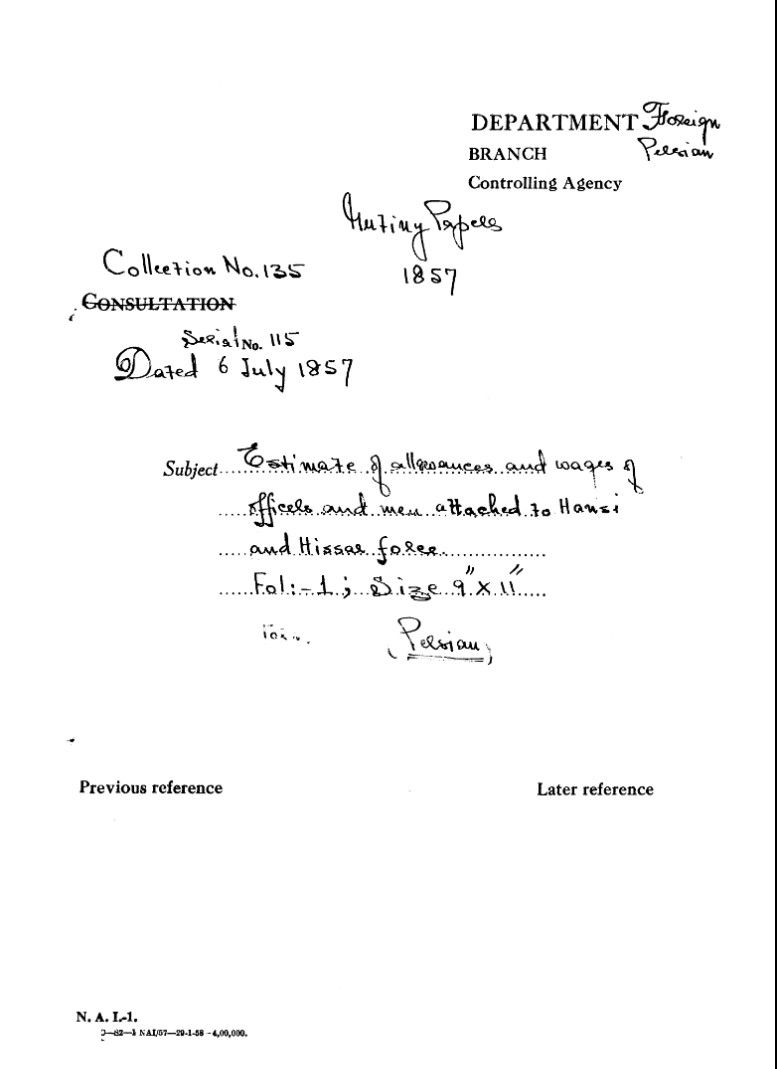 DEPARTMENT Foreign
BRANCH Persian
Controlling Agency
Mutiny Papers
1857
Collection No. 135
CONSULTATION
Serial No. 115
Dated 6 July 1857
Subject Estimate of allowances and wages of
officers and men attached to Hansi
and Hissar force
Fol:-1; Size 9" X 11"
(Persian)
Previous reference Later reference
N. A. I.-1.
82—1 NAI/57—29-1-58 -4,00,000.